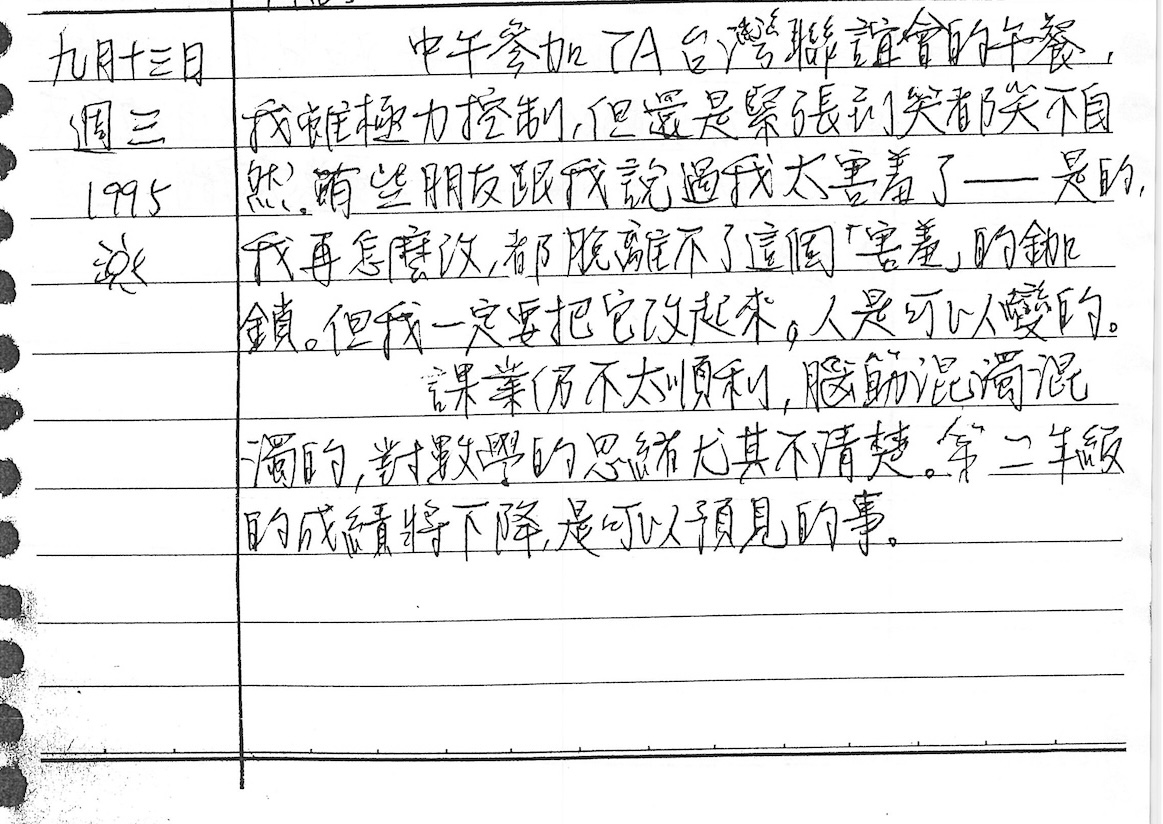 九月十三日
週三
1995
中午參加TA台灣聯誼會的午餐，
我雖極力控制，但還是緊張到笑都笑不自
然。有些朋友跟我說過我太害羞了——是的，
我再怎麼改，都脫離不了這個「害羞」的枷
鎖。但我一定要把它改起來。人是可以變的。
課業仍不太順利，腦筋混濁混
濁的，對數學的思緒尤其不清楚。第二年級
的成績將下降，是可以預見的事。